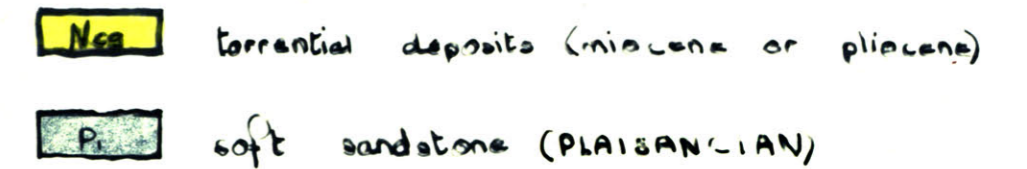 Ncg torrential deposits (miocene or pliocene)
P1 soft sandstone (PLAISANCIAN)